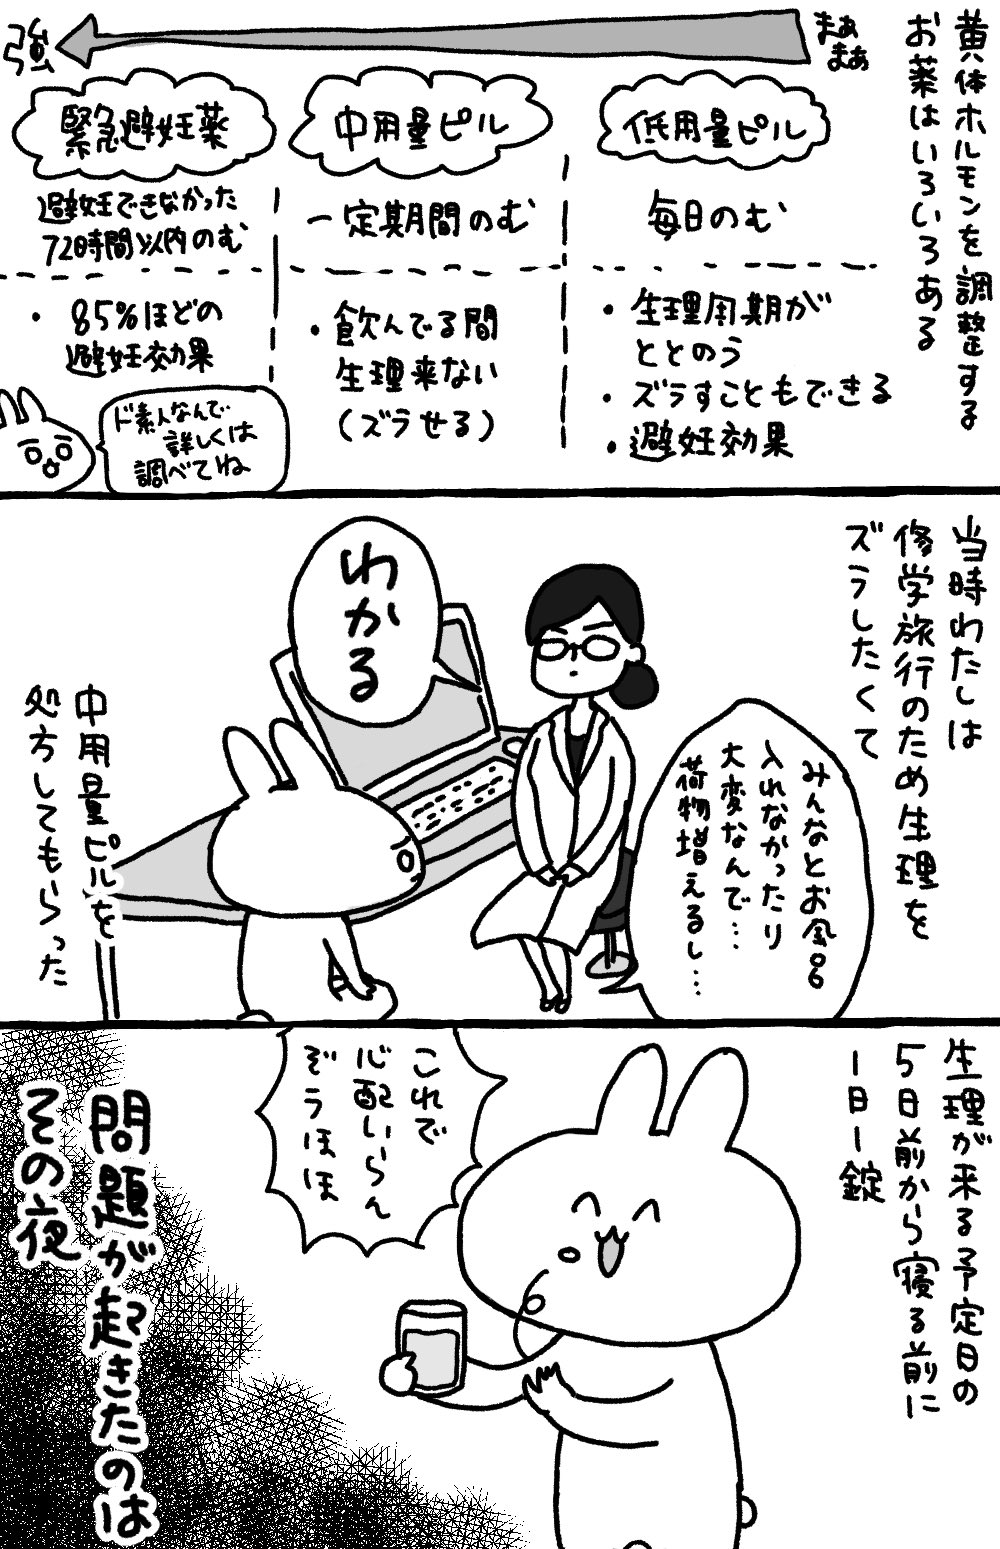 黄体ホルモンを調整する
お薬はいろいろある
まぁ
まぁ
強
低用量ピル
毎日のむ
・生理周期が
ととのう
・ズラすこともできる
・避妊効果
中用量ピル
一定期間のむ
・飲んでる間
生理来ない
(ズラせる)
緊急避妊薬
避妊できなかった
72時間以内のむ
・85%ほどの
避妊効果
ド素人なんで…
詳しくは
調べてね
当時わたしは
修学旅行のため生理を
ズラしたくて
みんなとお風呂
入れなかったり
大変なんで…
荷物増えるし…
わかる
中用量ピルを
処方してもらった
生理が来る予定日の
5日前から寝る前に
1日1錠
これで
心配いらん
ぞうほほ
問題が起きたのは
その夜